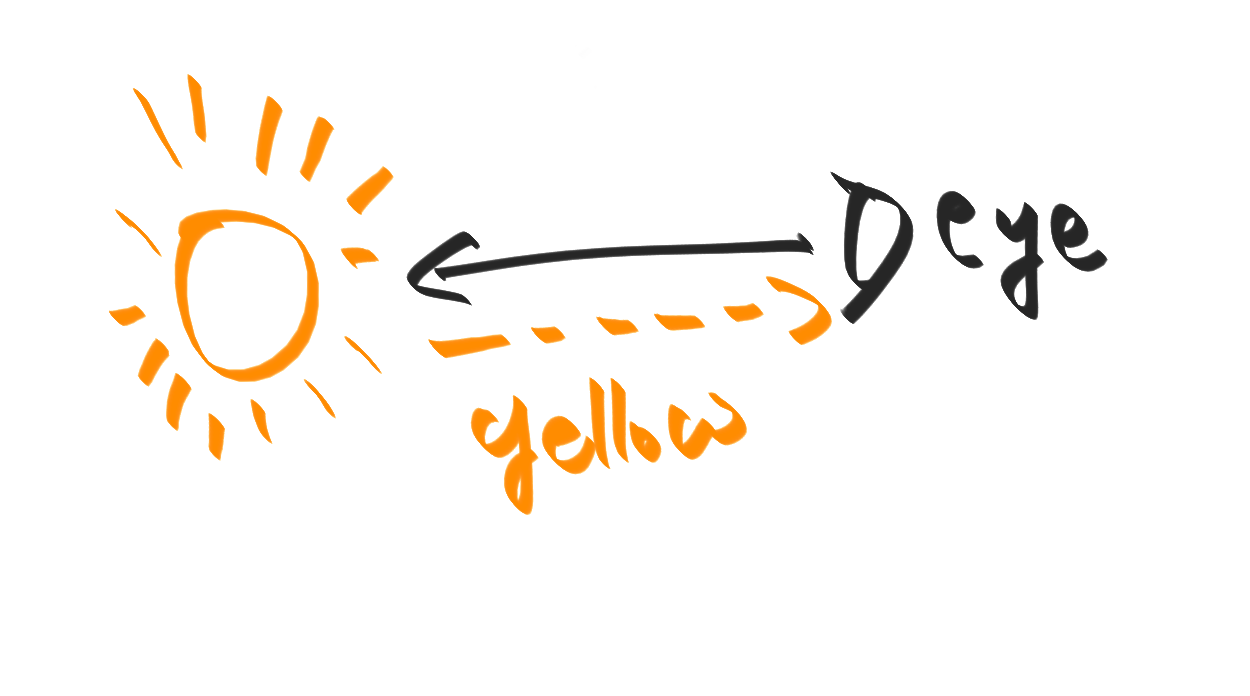 eye
yellow